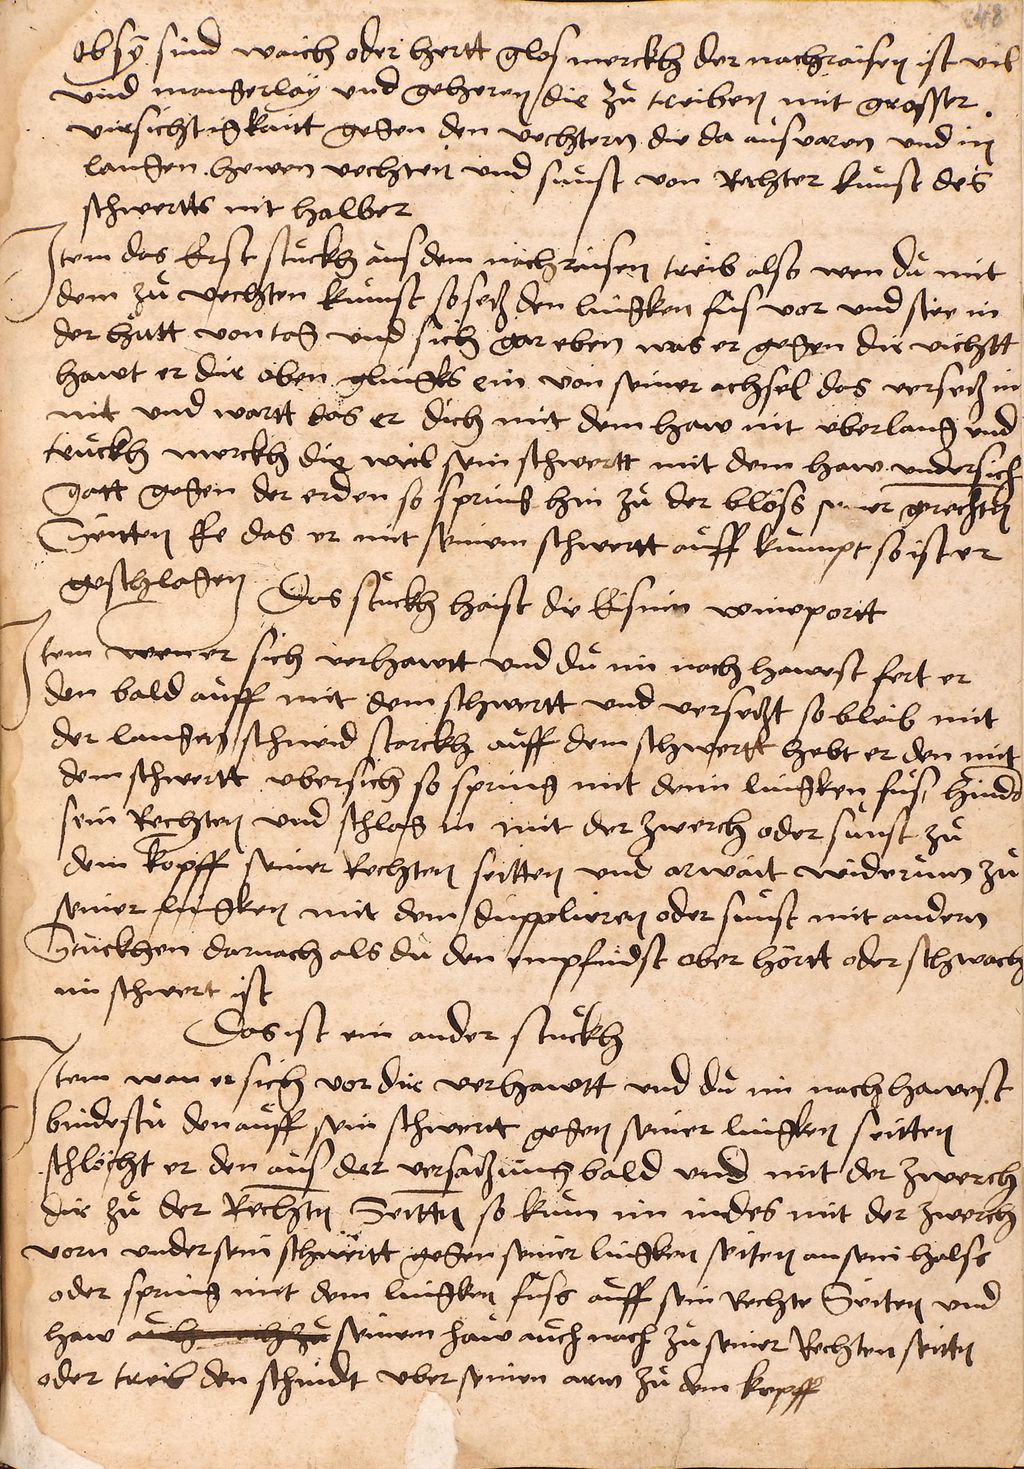 48
Ob sÿ sind waich oder hertt glos merckh der nachraisen ist vil
vnd mangerlaÿ vnd gehoren die zu treiben mit grosser
virsichtigkaitt gegen den vechtern die da aus varen vnd in
langen hewen vechten vnd sunst von Rechter kunst des
schwertts nit halber
Item das Erst stuckh aus dem nachraisen treib also wen du mit
dem zu vechten kumst so secz den lingken fus vor vnd ste in
der hutt von tag vnd sich gar eben was er gegen dir vichtt
hawt er dir oben glingks ein von seiner achsel das versecz in
nit vnd wartt das er dich mit dem haw nit vberlang vnd
truckh merckh die weil sein schwertt mit dem haw vndersich
gatt gegen der erden so spring hin zu der blöss seiner gerechten
Seitten Ee das er mit seinem schwertt auff kumpt so ist er
geschlagen
Das stuckh haist die Eisnin
Item wen er sich verhawtt vnd du im nach hawest fert er
den bald auff mit dem schwertt vnd verseczt so bleib mit
der langen schneid starckh auff dem schwertt hebt er den mit
dem schwertt vbersich so spring mit deim lingken fus hinder
sein Rechten vnd schlag in mit der zwerch oder sunst zu
dem kopff seiner Rechten seitten vnd arwait widerum zu
seiner lingken mit dem dupplieren oder sunst mit andern
Stuckhen darnach als du den empfindst ober hörtt oder schwach
im schwert ist
Das ist ein ander stuckh
Item wan er sich vor dir verhawtt vnd du im nach hawest
bindestu den auff sein schwertt gegen seiner lingken seitten
schlöcht er den aus der versaczung bald vmb mit der zwerch
dir zu der Rechten Seitten so kum im indes mit der zwerch
vorn vnder sein schwertt gegen seiner lingken seiten an sein halss
oder spring mit dem lingken fuss auff sein Rechte Seiten vnd
haw seinem haw auch nach zu seiner Rechten seitten
oder treib den schnidt vber seinen arm zu dem kopff